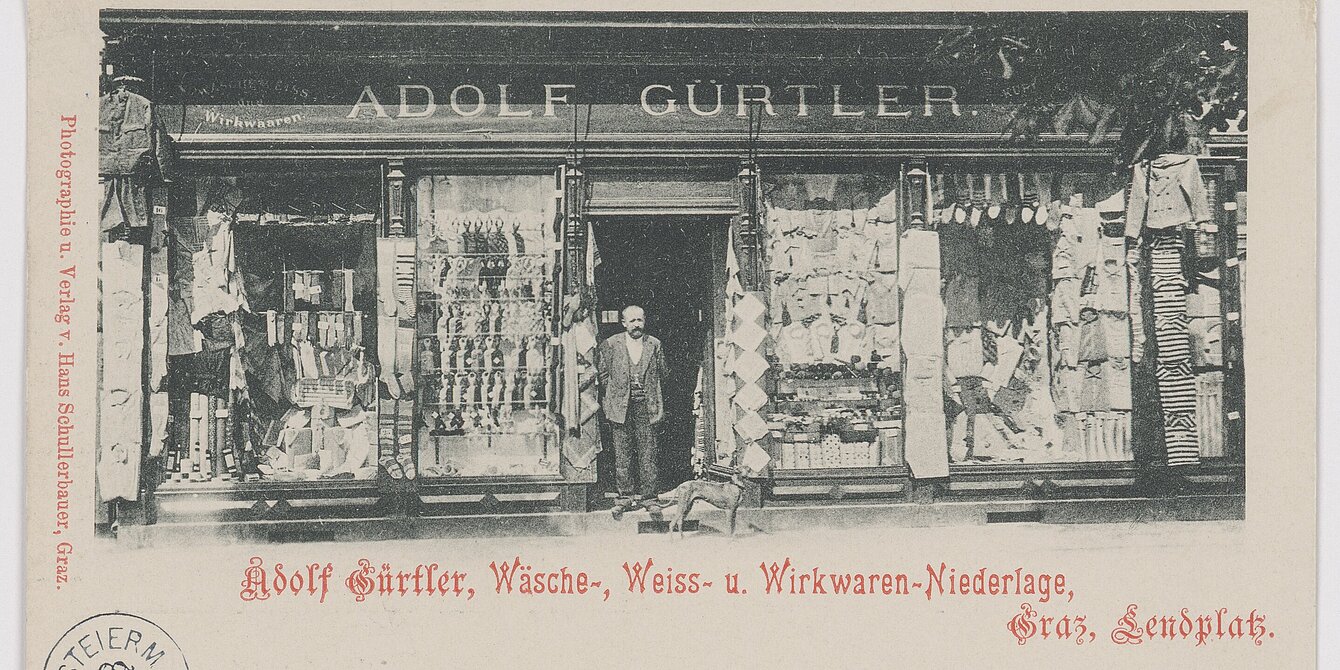 ADOLF GÜRTLER.
Wirkwaaren
Photographie u. Verlag v. Hans Schullerbauer, Graz.
Adolf Gürtler, Wäsche-, Weiss- u. Wirkwaren-Niederlage,
Graz, Lendplatz.
STEIERM